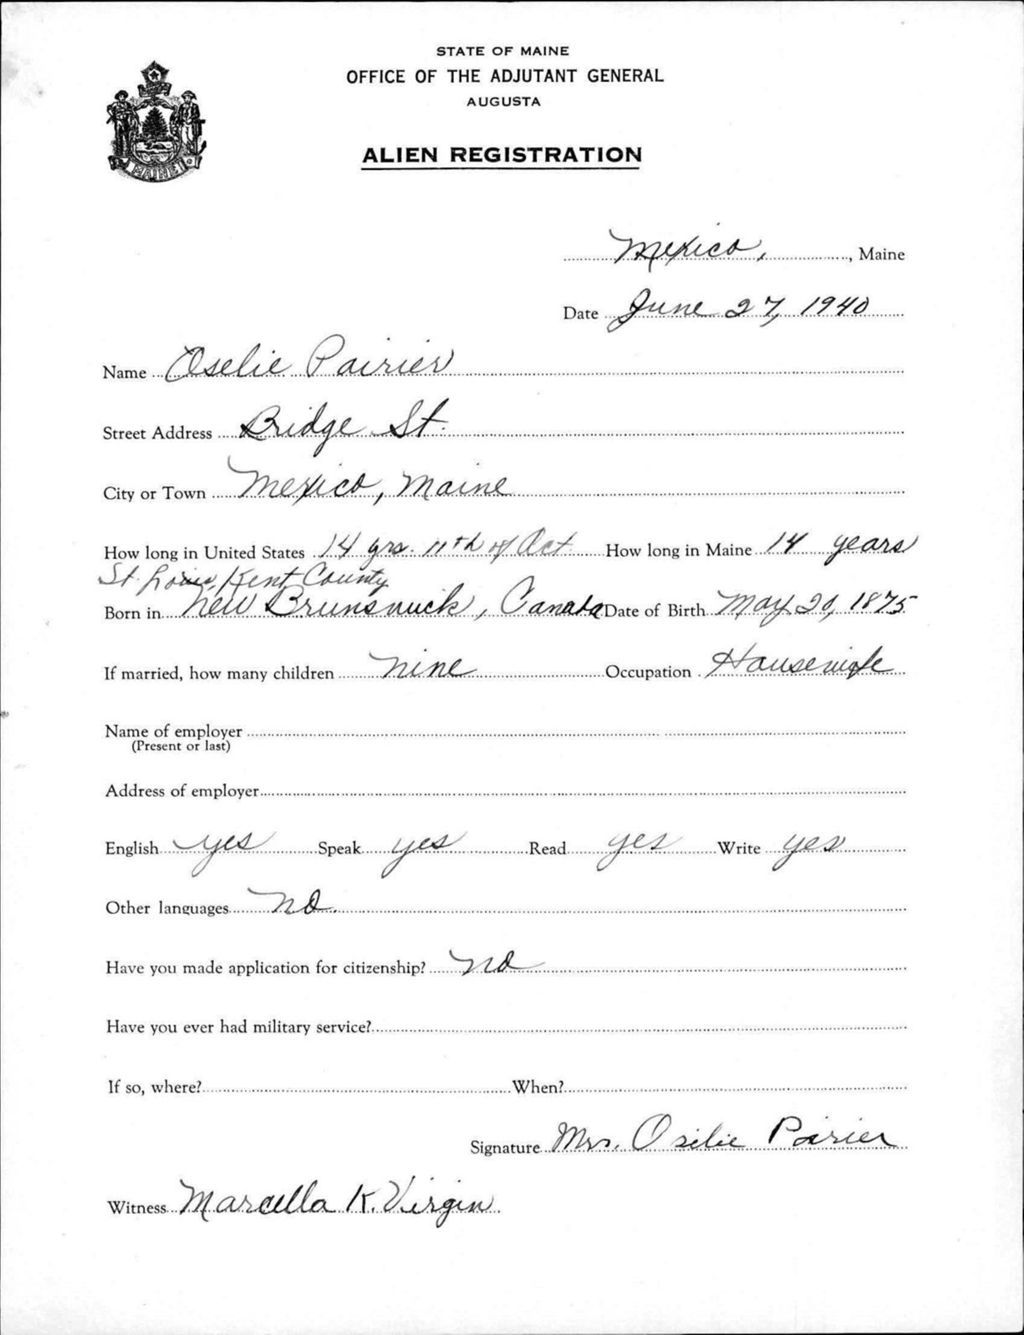 STATE OF MAINE
OFFICE OF THE ADJUTANT GENERAL
AUGUSTA
ALIEN REGISTRATION
MAINE
Mexico, , Maine
Date June 27, 1940
Name Oselie Pairier
Street Address Bridge St.
City or Town Mexico, Maine
How long in United States 14 yrs. 11th of Oct How long in Maine 14 years
St. Louis, Kent County
Born in New Brunswick, Canada Date of Birth May 20, 1875
If married, how many children nine Occupation Housewife
Name of employer
(Present or last)
Address of employer
English yes Speak yes Read yes Write yes
Other languages no.
Have you made application for citizenship? no
Have you ever had military service?
If so, where? When?
Signature Mrs. Osilie Poirier
Witness Marcella K. Virgin